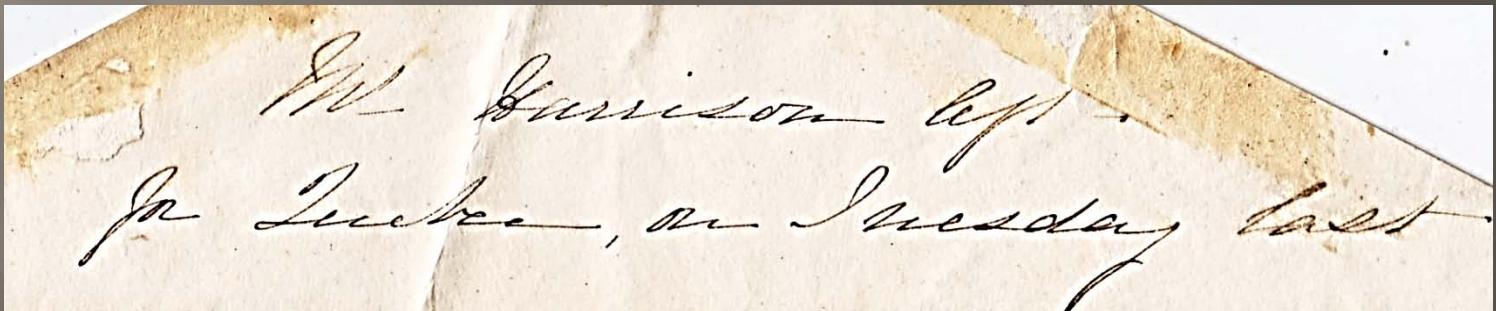 Mr Harrison left
for Quebec, on Tuesday last